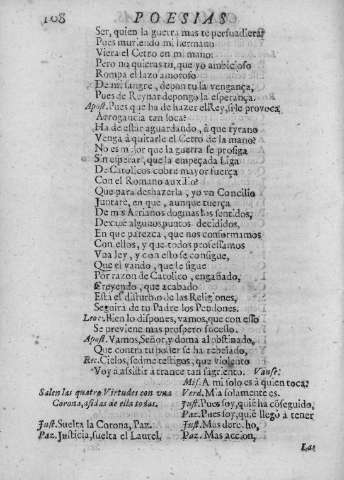 108 POESIAS
Ser, quien la guerra mas te persuadiera?
Pues muriendo mi hermano
Viera el Cetro en mi mano:
Pero no quieras tu, que yo ambicioso
Rompa el lazo amoroso
De mi sangre, depon tu la vengança,
Pues de Reynar depongo la esperança.
Apost. Pues que ha de hazer el Rey, si le provoca
Arrogancia tan loca?
Ha de estar aguardando, à que tyrano
Venga à quitarle el Cetro de la mano?
No es mejor que la guerra se prosiga
Sin esperar, que la empeçada Liga
De Catolicos cobre mayor fuerça
Con el Romano auxilio?
Que para deshazerla, yo vn Concilio
Juntarè, en que, aunque tuerça
De mis Arrianos dogmas los sentidos,
Dexe algunos puntos decididos,
En que parezca, que nos conformamos
Con ellos, y que todos professamos
Vna ley, y con esto se consigue,
Que el vando, que le sigue
Por razon de Catolico, engañado,
Creyendo, que acabado
Està el disturbio de las Religiones,
Seguirà de tu Padre los Pendones.
Leov. Bien lo dispones, vamos, que con esto
Se previene mas prospero sucesso.
Apost. Vamos, Señor, y doma al obstinado,
Que contra tu poder se ha rebelado,
Rec. Cielos, sedme testigos, que violento
Voy à assistir à trance tan sangriento. Vanse.
Mis. A mi solo es à quien toca?
Salen las quatro Virtudes con vna
Corona, asidas de ella todas.
Verd. Mia solamente es.
Just. Pues soy, quiē ha cōseguido,
Paz. Pues soy, quiē llegò à tener
Just. Suelta la Corona, Paz.
Paz. Justicia, suelta el Laurel,
Just. Mas derecho,
Paz. Mas accion,